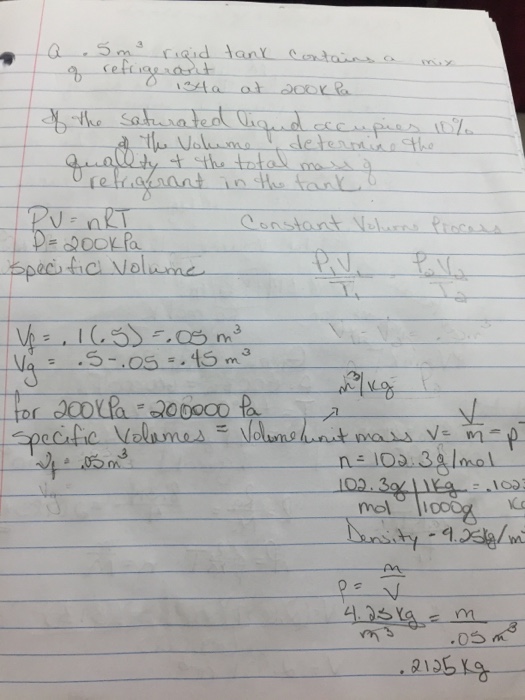 a .5m³ rigid tank contains a mix
of refrigerant
134a at 200kPa
If the saturated liquid occupies 10%
of the volume, determine the
quality + the total mass of
refrigerant in the tank.
PV = nRT Constant Volume Process
P = 200kPa
Specific Volume P₁V₁ P₂V₂
T₁ T₂
Vf = .1(.5) = .05 m³
Vg = .5-.05 = .45 m³
m³/kg
for 200kPa = 200000 Pa
Specific Volumes = Volume/unit mass v = V/m = p
vf = .05m³ n = 102.3g/mol
Vg 102.3g | 1kg = .102
mol | 1000g
Density - 4.25kg/m
p = m/V
4.25kg/m³ = m/.05 m³
.2125 kg